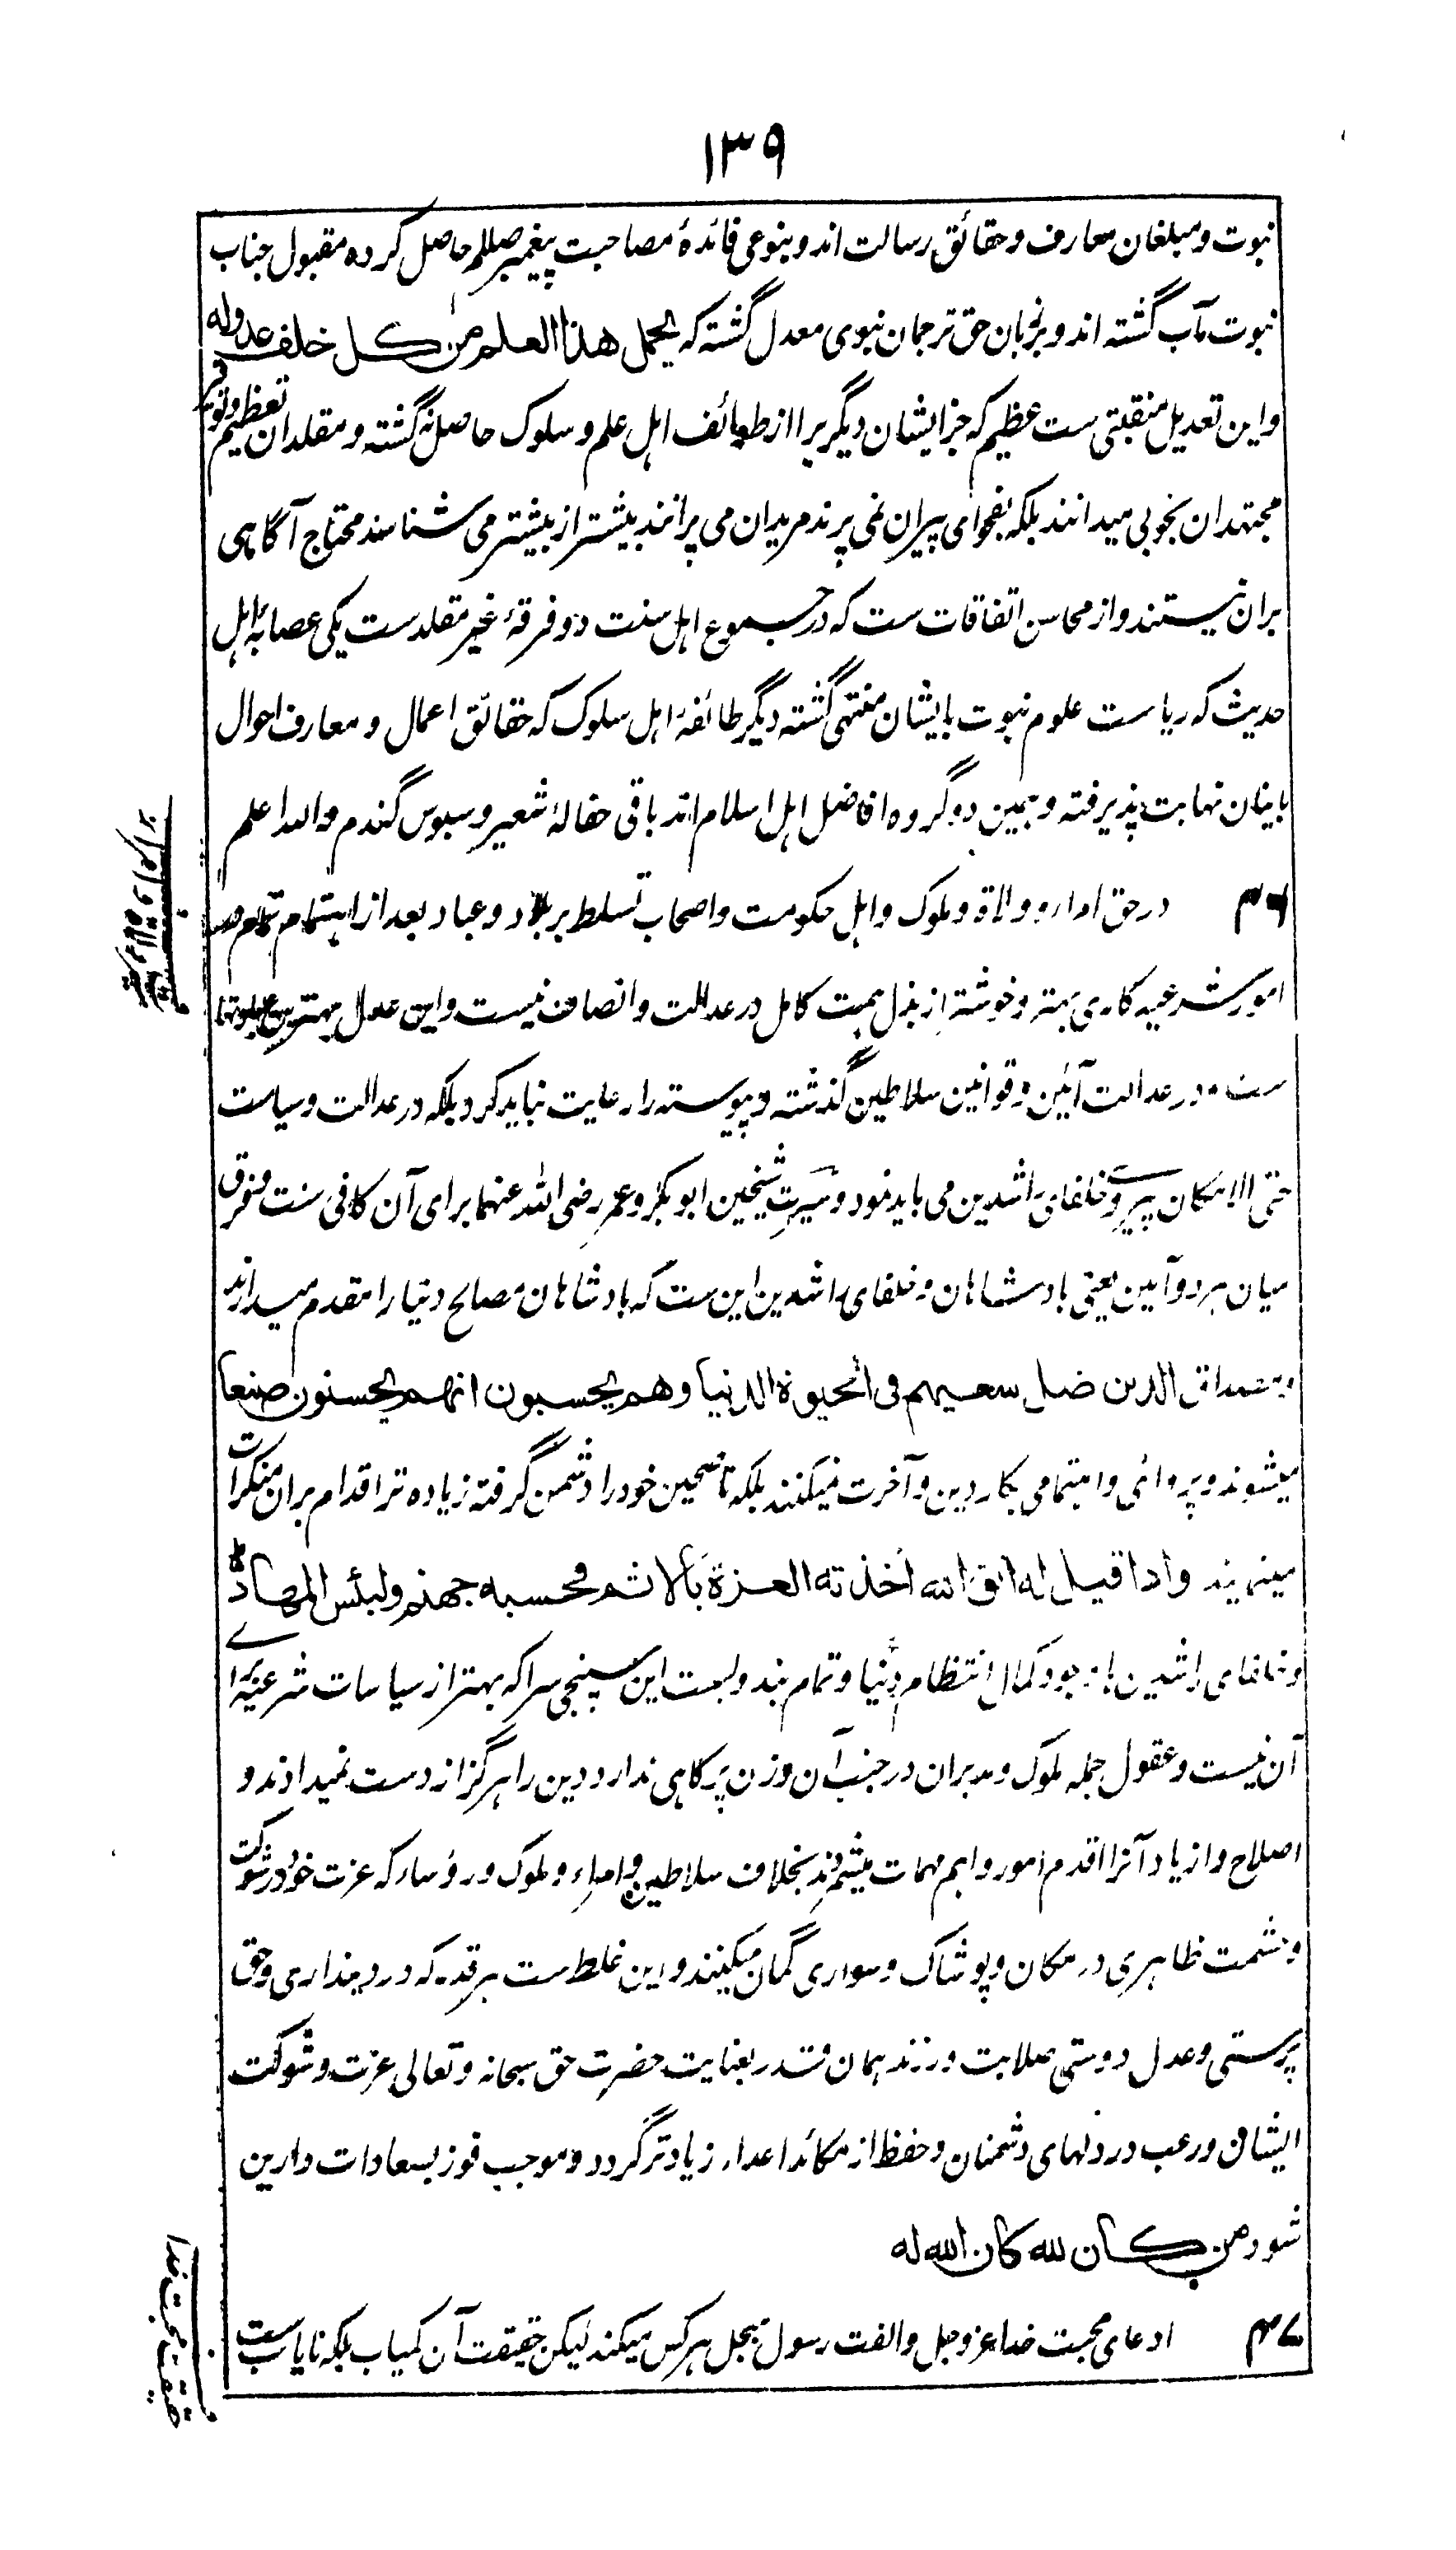 ۱۳۹
نبوت و مبلغان معارف و حقائق رسالت اند و بنوعی فائدهٔ مصاحبت پیغمبر صللم حاصل کرده مقبول جناب
نبوت مآب گشته اند و بزبان حق ترجمان نبوی معدل گشته که یحمل هذا العلم من کل خلف عدوله
و این تعدیل منقبتی ست عظیم که جز ایشان دیگریرا از طوائف اہل علم و سلوک حاصل نگشته و مقلدان تعظیم و توقیر
مجتهدان بخوبی میدانند بلکه بفحوای پیران نمی پرند مریدان می پرانند بیشتر از بیشتر می شناسند محتاج آگاہی
بران نیستند و از محاسن اتفاقات ست که در مجموع اہل سنت دو فرقهٔ غیر مقلدست یکی عصابهٔ اہل
حدیث که ریاست علوم نبوت بایشان منتهی گشته دیگر طائفهٔ اہل سلوک که حقائق اعمال و معارف احوال
باینان نهایت پذیرفته و ہمین دو گروه افاضل اہل اسلام اند باقی حفالهٔ شعیر و سبوس گندم والله اعلم
۴۶ در حق امارء و ولاة و ملوک و اہل حکومت و اصحاب تسلط بر بلاد و عباد بعد از اہتمام تمام در
امور شرعیه کاری بهتر و خوشتر از بذل ہمت کامل در عدالت و انصاف نیست و این عدل بهترین عبادتها
ست و در عدالت آئین و قوانین سلاطین گذشته و پیوسته را رعایت نباید کرد بلکه در عدالت و سیاست
حتی الامکان پیروے خلفای راشدین می باید نمود و سیرتِ شیخین ابوبکر و عمر رضی الله عنهما برای آن کافی ست و فرق
میان ہر دو آیین یعنی بادشاہان و خلفای راشدین این ست که بادشاہان مصالح دنیا را مقدم میدارند
و مصداق الذین ضل سعیهم فی الحیوة الدنیا وهم یحسبون انهم یحسنون صنعا
میشوند و پروائی و اہتمامی بکار دین و آخرت نمیکنند بلکه ناصحین خود را دشمن گرفته زیاده تر اقدام بران منکرات
مینمایند واذا قیل له اتق الله أخذته العزة بالاثم فحسبه جهنم ولبئس المهاد
و خلفای راشدین با وجود کمال انتظام دنیا و تمام بندوبست این سپنجی سرا که بهتر از سیاسات شرعیه برای
آن نیست و عقول جمله ملوک و مدبران در جنب آن وزن پرکاہی ندارد دین را ہرگز از دست نمیدادند و
اصلاح و ازیاد آنرا اقدم امور و اہم مهمات میشمردند بخلاف سلاطین و امراء و ملوک و رؤساء که عزت خود در شوکت
و حشمت ظاہری در مکان و پوشاک و سواری گمان میکنند و این غلط ست ہرقدر که در دینداری و حق
پرستی و عدل دوستی صلابت ورزند ہمان قدر بعنایت حضرت حق سبحانه و تعالی عزت و شوکت
ایشان و رعب در دلهای دشمنان و حفظ از مکائد اعداء زیادتر گردد و موجب فوز بسعادات دارین
شود من کان لله کان الله له
۴۷ ادعای محبت خدا عز و جل و الفت رسول مبجل ہر کس میکند لیکن حقیقت آن کمیاب بلکه نایاب ست
حقیقت محبت خدا